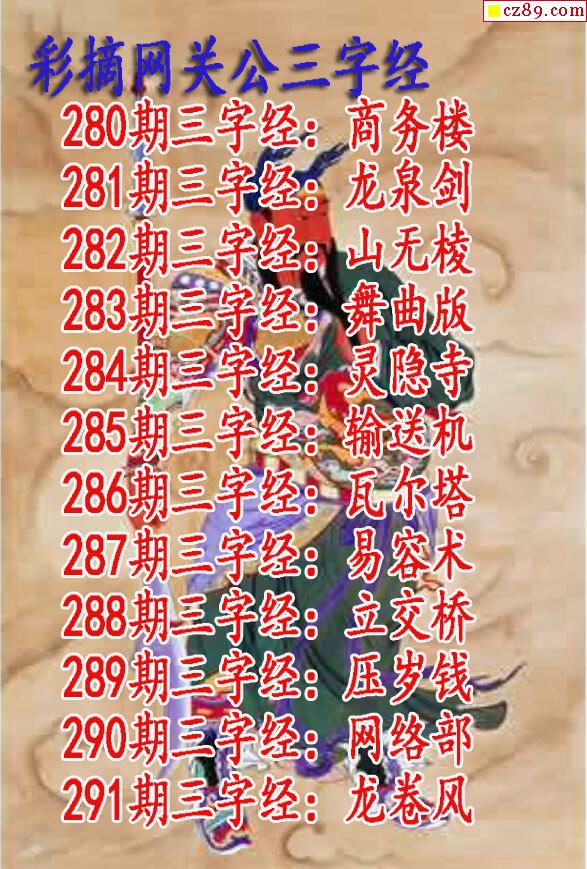 cz89.com
彩摘网关公三字经
280期三字经：商务楼
281期三字经：龙泉剑
282期三字经：山无棱
283期三字经：舞曲版
284期三字经：灵隐寺
285期三字经：输送机
286期三字经：瓦尔塔
287期三字经：易容术
288期三字经：立交桥
289期三字经：压岁钱
290期三字经：网络部
291期三字经：龙卷风